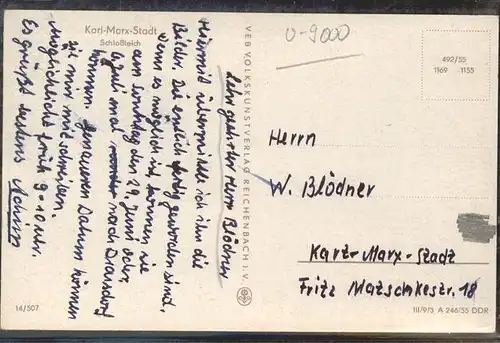 Karl-Marx-Stadt
Schloßteich
Sehr geehrter Herr Blödner
Hiermit übermittle ich ihn die
Bilder. Die endlich fertig geworden sind.
Wenn es möglich ist können sie
am Sonntag den 29. Juni oder
6 Juli mal nach
kommen. genaueren Datum können
sie mir mal schreiben.
möglichst früh 9-10 Uhr.
Es grüßt bestens
14/507
VEB VOLKSKUNSTVERLAG REICHENBACH I. V.
U-9000
492/55
1169 -1155
Herrn
W. Blödner
Karl-Marx-Stadt
Fritz Matschkestr. 18
III/9/3 A 246/55 DDR